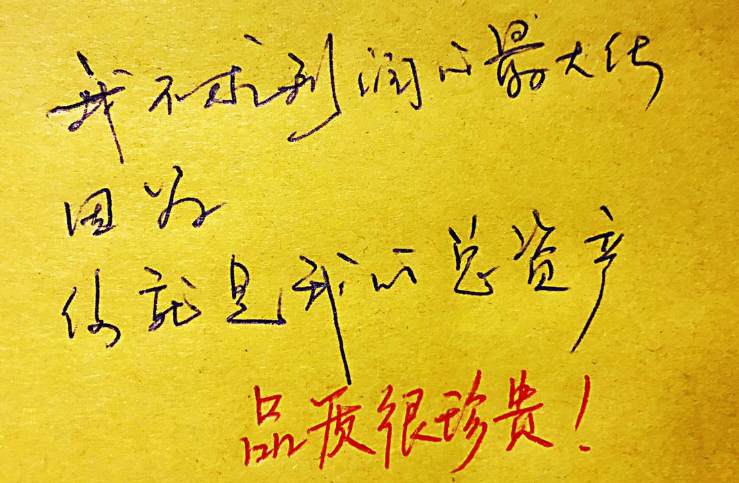 我不求利润的最大化
因为
你就是我的总资产
品质很珍贵！